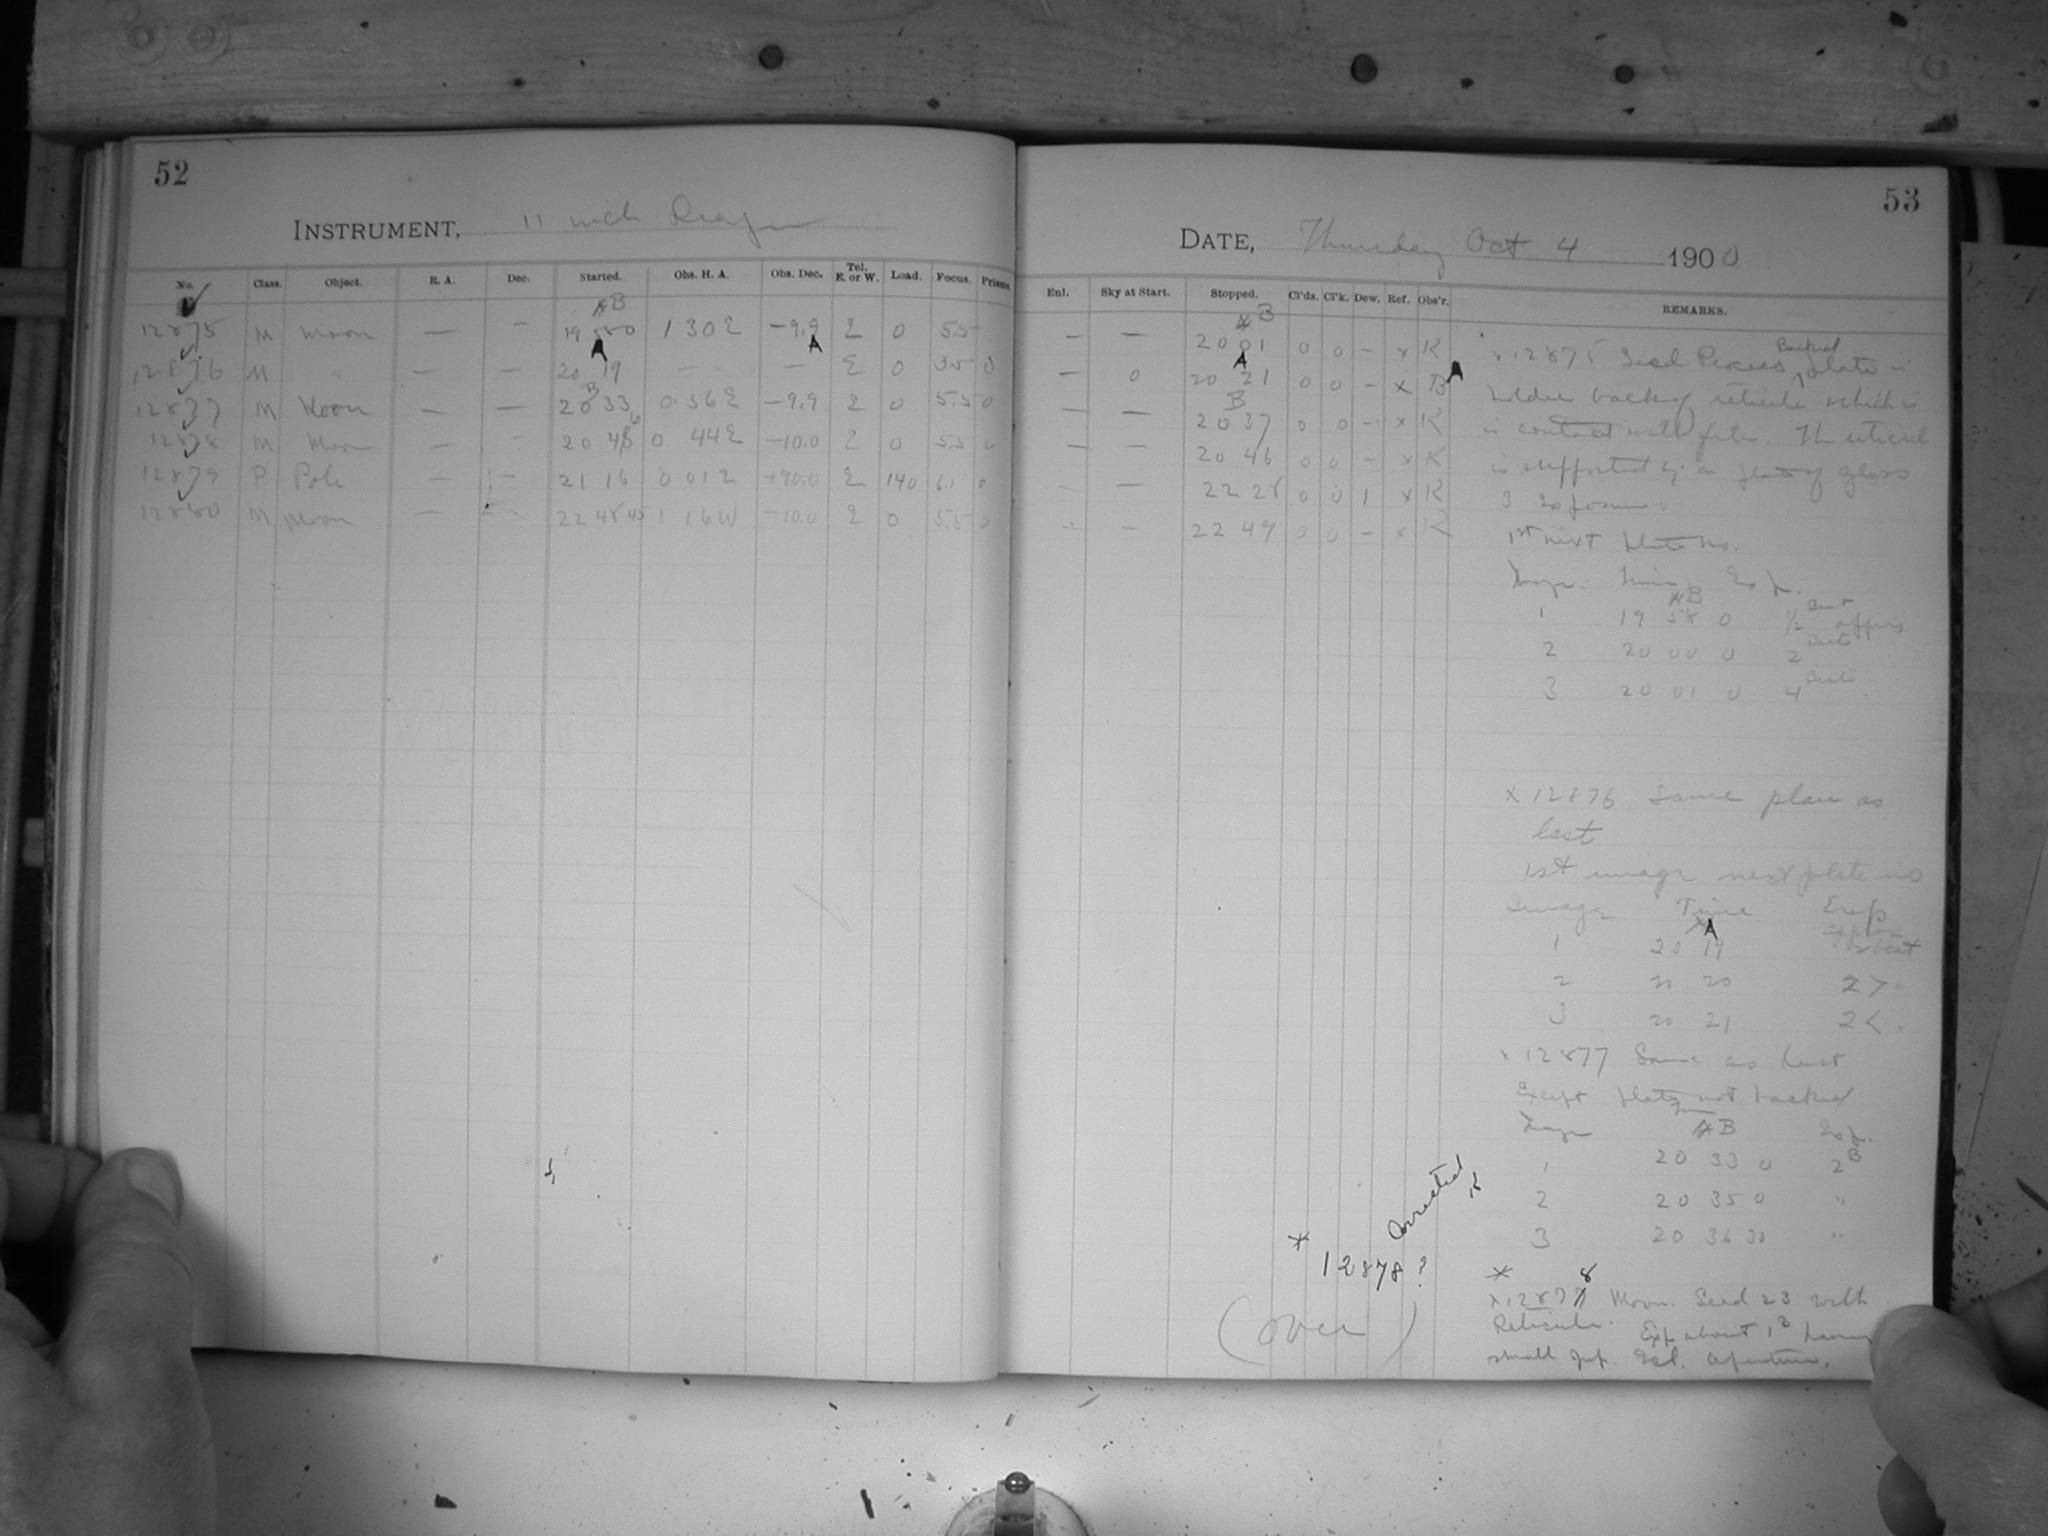 52
INSTRUMENT, 11 inch Draper
No. Class. Object. R. A. Dec. Started. Obs. H. A. Obs. Dec. Tel. E. or W. Load. Focus. Prisms
AB
12875 M Moon — — 19 58 0 1 30 E −9.9 E 0 5.5
A A
12876 M " — — 20 19 — — E 0 35 0
B
12877 M Moon — — 20 33 0 36 E −9.9 E 0 5.5 0
12878 M Moon — — 20 46 0 44 E −10.0 E 0 5.5 0
12879 P Pole — — 21 16 0 01 E +90.0 E 140 6.1 0
12880 M Moon — — 22 48 45 1 16 W −10.0 E 0 5.5 0
53
DATE, Thursday Oct 4 1900
Enl. Sky at Start. Stopped. Cl'ds. Cl'k. Dew. Ref. Obs'r. REMARKS.
B
— — 20 01 0 0 – x K
A A
— 0 20 21 0 0 – x B
B
— — 20 37 0 0 – x K
— — 20 46 0 0 – x K
— — 22 28 0 0 1 x K
— — 22 49 0 0 – x K
x 12875 Seed Backed plate in
holder back of reticule which is
in contact with film. The reticule
is supported by a of glass
3 Exposures
1st next plate no.
Image. Time. Exp.
B
1 19 58 0 1/2 Beat approx
2 20 00 0 2 Beats
3 20 01 0 4 Beats
x 12876 Same plan as
last
1st image next plate no
Image Time Exp
A approx
1 20 19 2 beat
2 20 20 2 > "
3 20 21 2 < "
x 12877 Same as last
Except plate not backed
Image B Exp.
1 20 33 0 2 B
2 20 35 0 "
3 20 36 30 "
* 12878? Corrected
(over)
* 8
x 12877 Moon. Seed 23 with
Reticule. Exp about 1 B having
small Aperture.